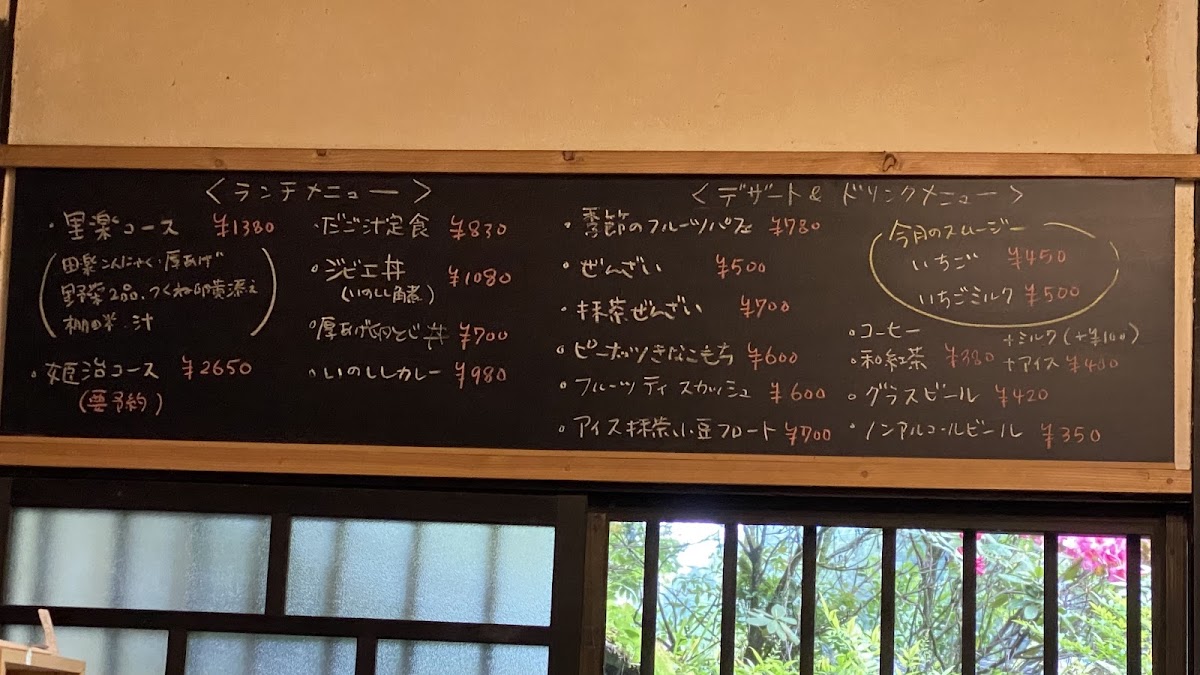 <ランチメニュー>
・里楽コース ¥1380
(田楽こんにゃく・厚あげ
野菜2品、つくね卵黄添え
棚田米・汁)
・姫治コース ¥2650
(要予約)
・だご汁定食 ¥830
・ジビエ丼 ¥1080
(いのしし角煮)
・厚あげ卵とじ丼 ¥700
・いのししカレー ¥980
<デザート& ドリンクメニュー>
・季節のフルーツパフェ ¥780
・ぜんざい ¥500
・抹茶ぜんざい ¥700
・ピーナッツきなこもち ¥600
・フルーツティスカッシュ ¥600
・アイス抹茶小豆フロート ¥700
今月のスムージー
いちご ¥450
いちごミルク ¥500
・コーヒー +ミルク(+¥100)
・和紅茶 ¥380 +アイス ¥480
・グラスビール ¥420
・ノンアルコールビール ¥350